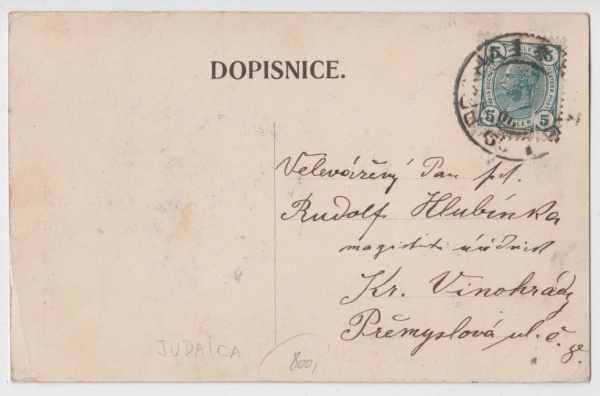 DOPISNICE.
PRAHA 1
5 5
5 HELLER 5
Velevážený Pan pt.
Rudolf Hlubínka
magistr. úředník
Kr. Vinohrady
Přěmyslová ul. č.
JUDAICA
800,